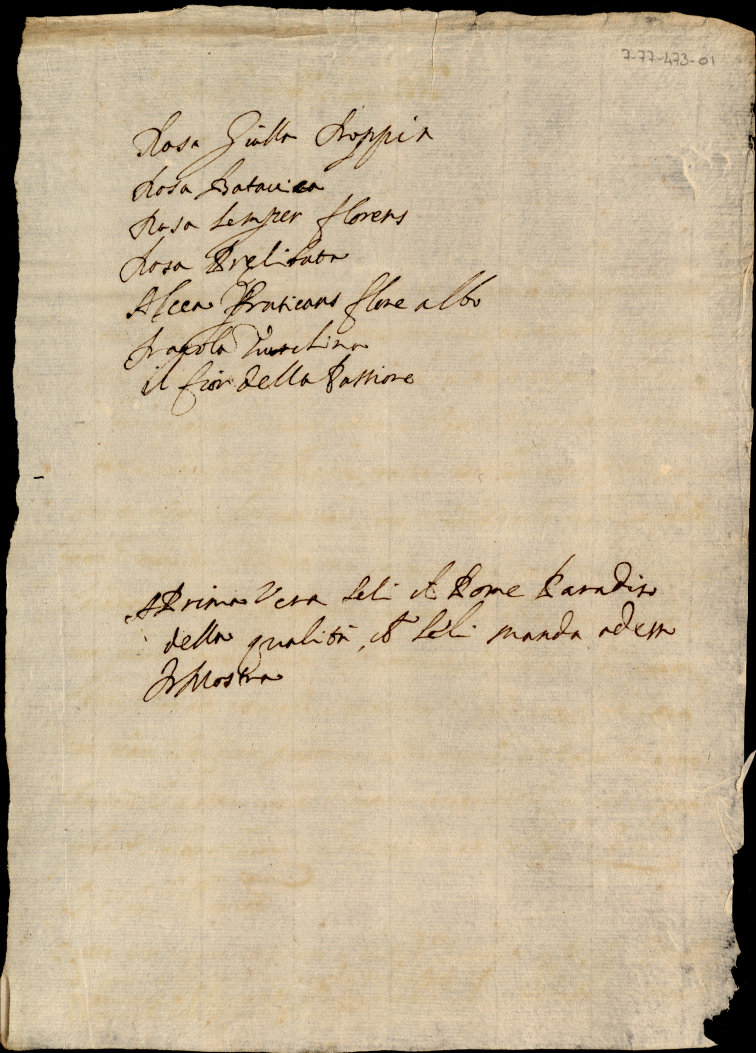 7-77-473-01
Rosa Gialla Doppia
Rosa Batavica
Rosa Semper florens
Rosa
Alcea Fruticans flore albo
Fragola Turchina
il fior della Passione
A Prima Vera Paradiso
della qualità, manda adesso
In Mostra